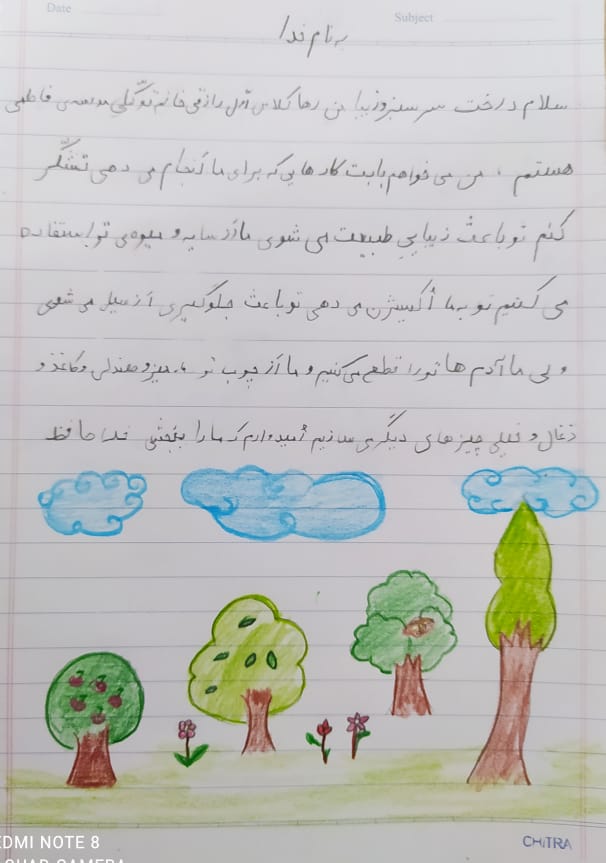 Date
Subject
به نام خدا
سلام درخت سرسبز و زیبا من رها کلاس اول رازقی خانم توکلی مدرسه ی فاطمی
هستم ، من می خواهم بابت کارهایی که برای ما انجام می دهی تشکّر
کنم تو باعث زیبایی طبیعت می شوی ما از سایه و میوه ی تو استفاده
می کنیم تو به ما اکسیژن می دهی تو باعث جلوگیری از سیل می شوی
ولی ما آدم ها تو را قطع می کنیم و ما از چوب تو میز و صندلی و کاغذ و
ذغال و خیلی چیزهای دیگری سازیم امیدوارم که ما را ببخشی خداحافظ
CHiTRA
REDMI NOTE 8
QUAD CAMERA